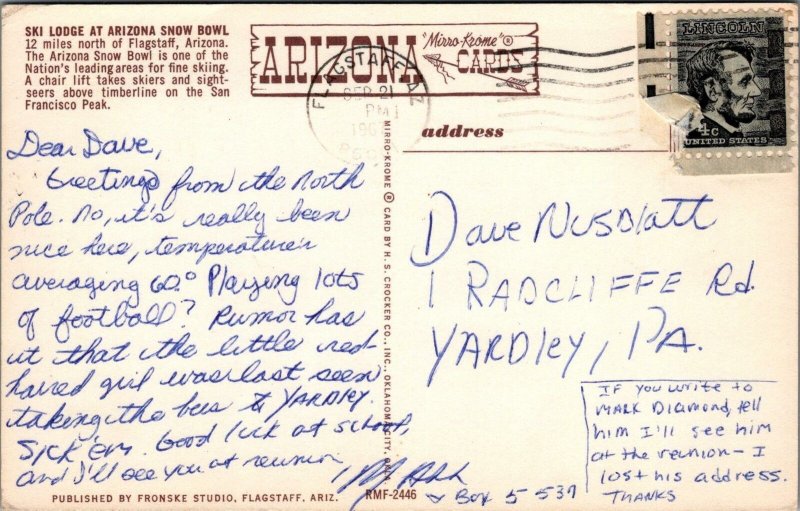 SKI LODGE AT ARIZONA SNOW BOWL
12 miles north of Flagstaff, Arizona.
The Arizona Snow Bowl is one of the
Nation's leading areas for fine skiing.
A chair lift takes skiers and sight-
seers above timberline on the San
Francisco Peak.
ARIZONA "Mirro-Krome"® CARDS
FLAGSTAFF AZ
SEP 2
PM
LINCOLN
4c
UNITED STATES
address
Dear Dave,
Greetings from the North
Pole. No, it's really been
nice here, temperature
averaging 60.° Playing lots
of football? Rumor has
it that the little red-
haired girl was last seen
taking the bus to YARDLEY.
SICK 'em. Good luck at school,
and I'll see you at reunion
Box 5537
MIRRO-KROME ® CARD BY H. S. CROCKER CO., INC., OKLAHOMA CITY, OKLA.
Dave Nusblatt
1 RADCLIFFE Rd.
YARDLEY, PA.
IF YOU WRITE TO
MARK DIAMOND, tell
him I'll see him
at the reunion - I
lost his address.
THANKS
PUBLISHED BY FRONSKE STUDIO, FLAGSTAFF, ARIZ.
RMF-2446